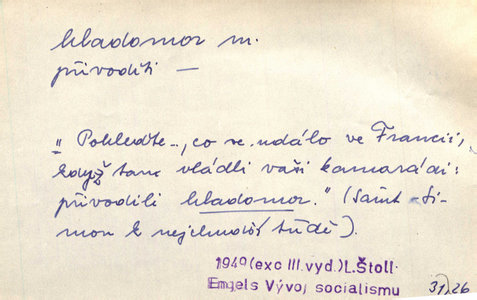 hladomor m.
přivoditi —
„Pohleďte..., co se událo ve Francii,
když tam vládli vaši kamarádi:
přivodili hladomor." (Saint-Si-
mon k nejchudší třídě).
1949 (exc III. vyd.) L. Štoll
Engels Vývoj socialismu
31, 26